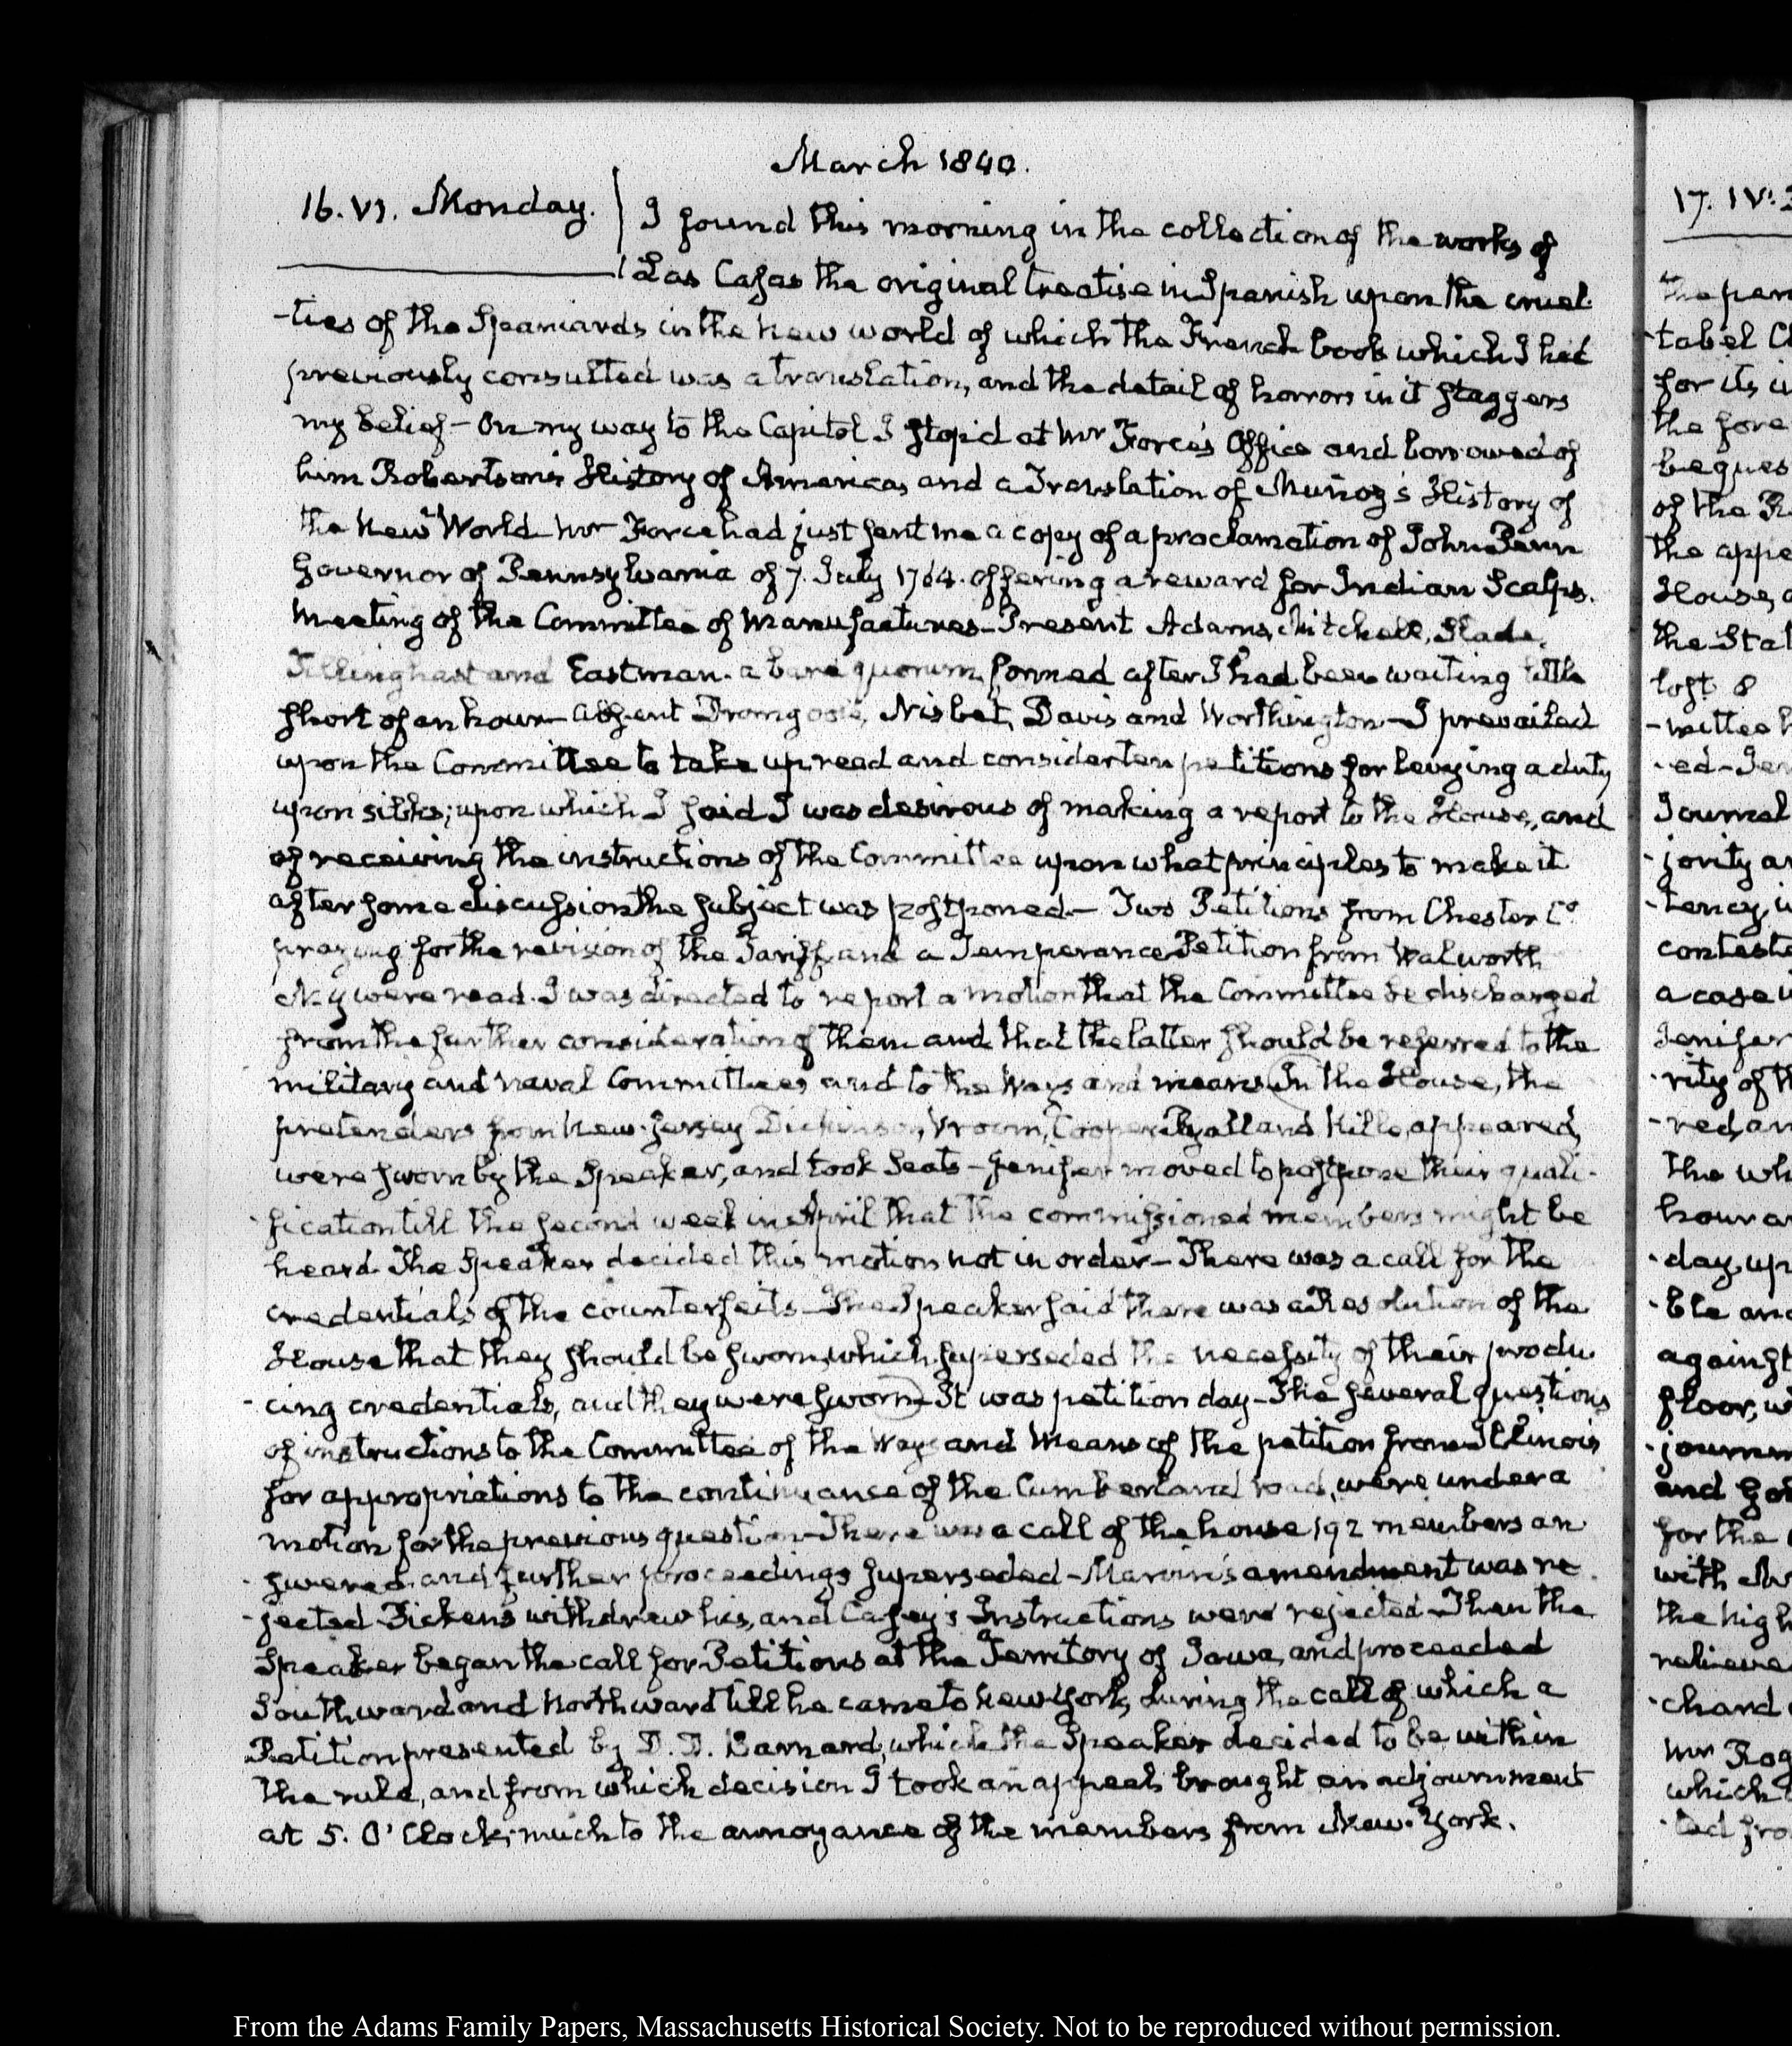 March 1840.
16. VI. Monday.
I found this morning in the collection of the works of
Las Casas the original treatise in Spanish upon the cruel-
-ties of the Spaniards in the new world of which the French book which I had
previously consulted was a translation, and the detail of horrors in it staggers
my belief – On my way to the Capitol I stop'd at Mr Force's Office and borrowed of
him Robertson's History of America, and a Translation of Muñoz's History of
the New World Mr Force had just sent me a copy of a proclamation of John Penn
Governor of Pennsylvania of 7. July 1764. offering a reward for Indian Scalps.
Meeting of the Committee of Manufactures – Present Adams, Mitchell, Slade,
Tillinghast and Eastman. a bare quorum, formed after I had been waiting little
short of an hour – absent Dromgoole, Nisbet, Davis and Worthington – I prevailed
upon the Committee to take up, read and consider ten petitions for levying a duty
upon silks; upon which I said I was desirous of making a report to the House, and
of receiving the instructions of the Committee upon what principles to make it
after some discussion the subject was postponed – Two Petitions from Chester Co.
praying for the revision of the Tariff, and a Temperance Petition from Walworth
N.Y were read. I was directed to report a motion that the Committee be discharged
from the further consideration of them and that the latter should be referred to the
military and naval Committees and to the Ways and means. In the House, the
pretenders from New-Jersey Dickinson, Vroom, Cooper, Ryall and Kille, appeared,
were sworn by the Speaker, and took Seats – Jenifer moved to postpone their quali-
-fication till the second week in April that the commissioned members might be
heard. The Speaker decided this motion not in order – There was a call for the
credentials of the counterfeits – The Speaker said there was a Resolution of the
House that they should be sworn, which superseded the necessity of their produ-
-cing credentials, and they were sworn – It was petition day – The several questions
of instructions to the Committee of the Ways and Means of the petition from Illinois
for appropriations to the continuance of the Cumberland road, were under a
motion for the previous question – There was a call of the house 192 members an-
-swered and further proceedings superseded – Marvin's amendment was re-
-jected Pickens withdrew his, and Casey's Instructions were rejected – Then the
Speaker began the call for Petitions at the Territory of Iowa, and proceeded
Southward and Northward till he came to New York, during the call of which a
Petition presented by D. D. Barnard, which the Speaker decided to be within
the rule, and from which decision I took an appeal, brought an adjournment
at 5. O'Clock; much to the annoyance of the members from New-York.
17. IV:
tabel
for its
the fore
of the
the appe
House,
the
loft 8
-mittee
-ed –
Journal
-jority
-tency,
contest
a case
Jenifer
-rity of
-red,
the
hour
-day, up
-ble and
against
floor,
for the
with
the high
relieve
Mr
which
From the Adams Family Papers, Massachusetts Historical Society. Not to be reproduced without permission.